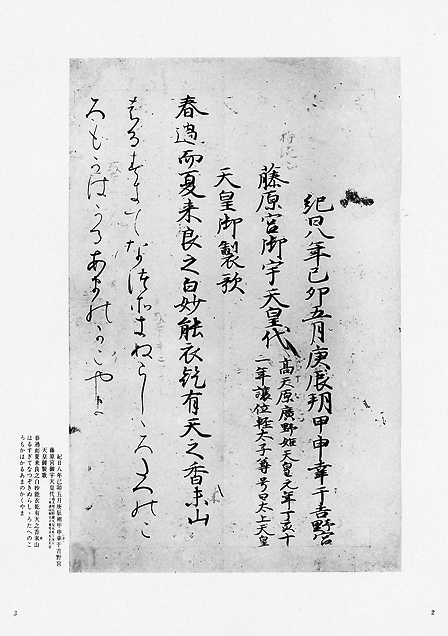 紀曰八年己卯五月庚辰朔甲申幸于吉野宮
藤原宮御宇天皇代 高天原廣野姫天皇元年丁亥十
一年譲位軽太子尊号曰太上天皇
天皇御製歌
春過而夏来良之白妙能衣乾有天之香来山
はるすきてなつそきぬらしゝろたへのこ
ろもかはかるあまのかくやま
紀日八年己卯五月庚辰朔甲申幸于吉野宮
藤原宮御宇天皇代
天皇御製歌
春過而夏来良之白妙能衣乾有天之香来山
はるすぎてなつぞきぬらしゝろたへのこ
ろもかはかるあまのかくやま
2
3